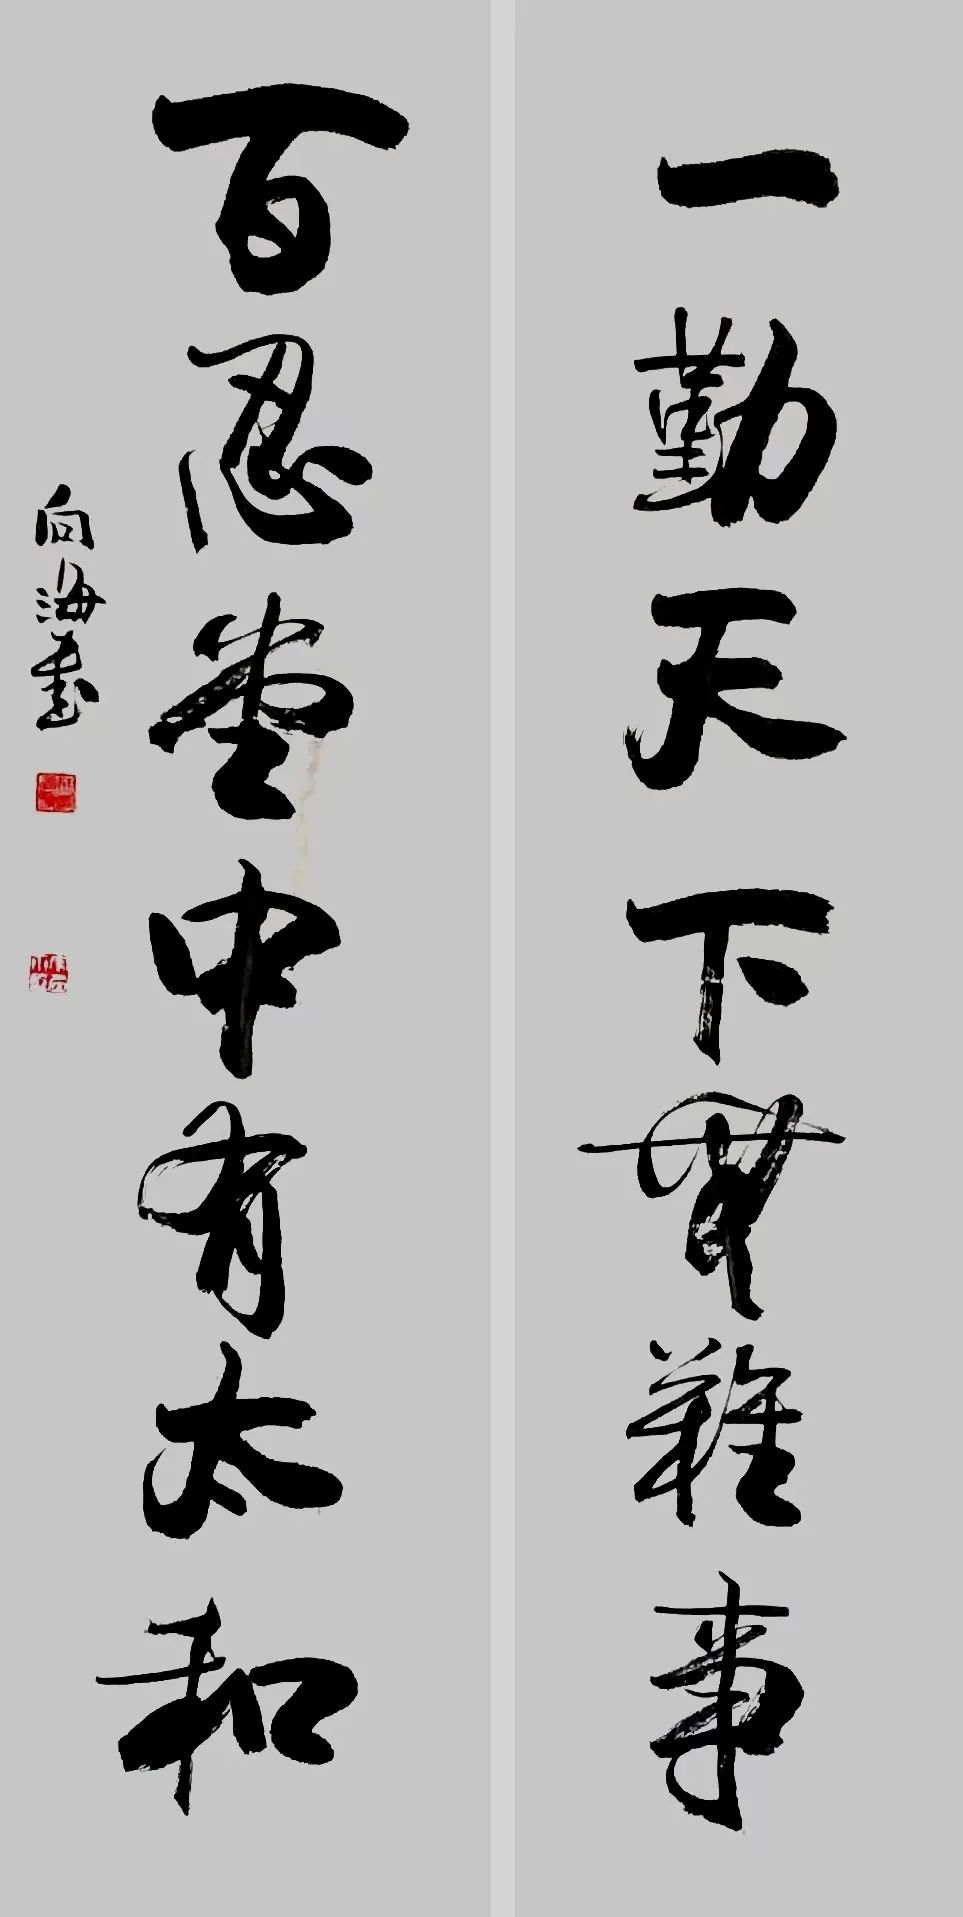 一勤天下無難事
百忍堂中有太和
向海書